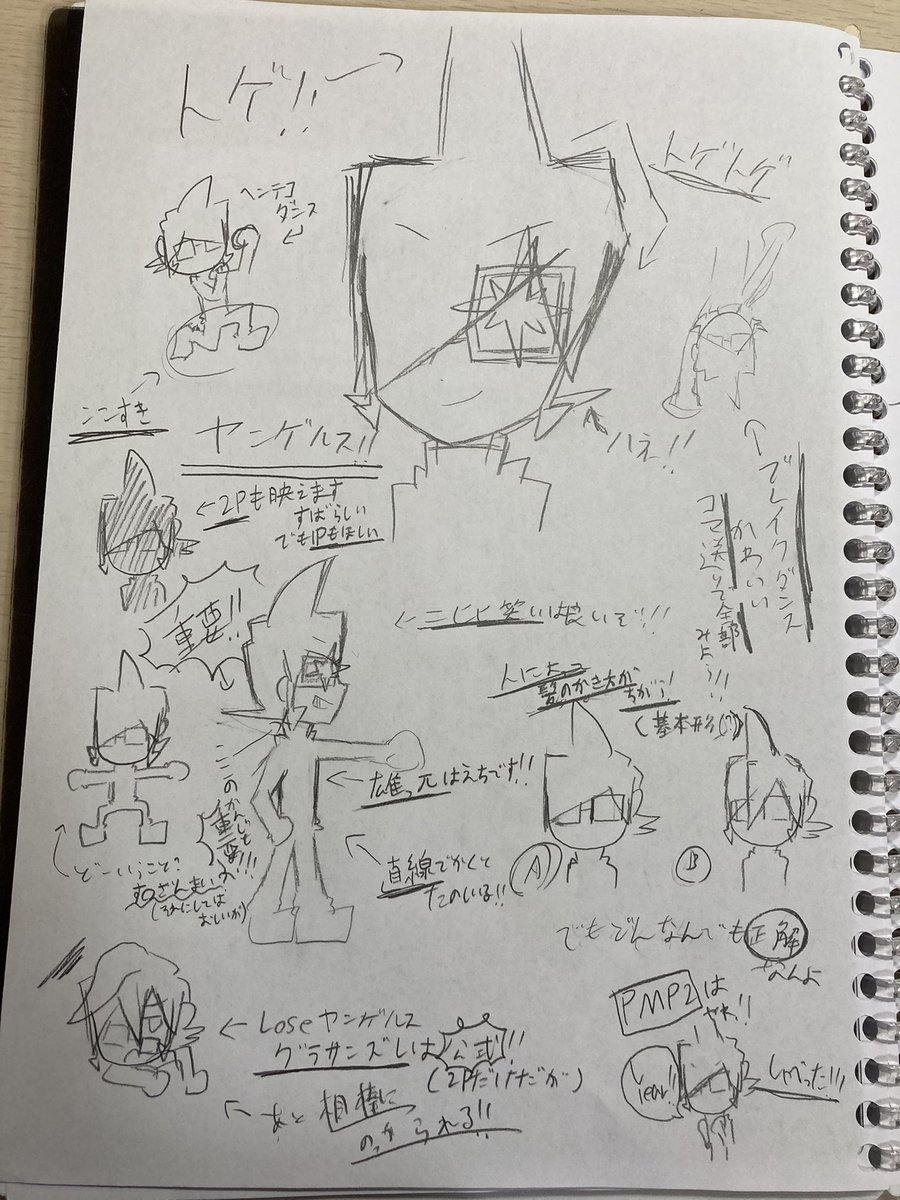 トゲ!!
トゲトゲ
ヘンテコ
ダンス
ここすき
ヤンゲルス!!
ハネ!!
←2Pも映えます
すばらしい
でも1Pもほしい
ブレイクダンス
かわいい
コマ送りで全部
みよう!!
重要!!
笑いは良いぞ!!
人によって
髪のかき方が
ちがう!
(基本形(?))
このかんじも
重要!!!
はえちです!!
直線でかくと
たのしいる!!
どーいうこと?
(それにしては
おしいが)
A
B
でもどんなんでも正解
なんよ
←Loseヤンゲルス
グラサンズレは公式!!
(2Pだけだが)
あと相棒に
のっかられる!!
PMP2は
Yeah!!
しゃべった!!!